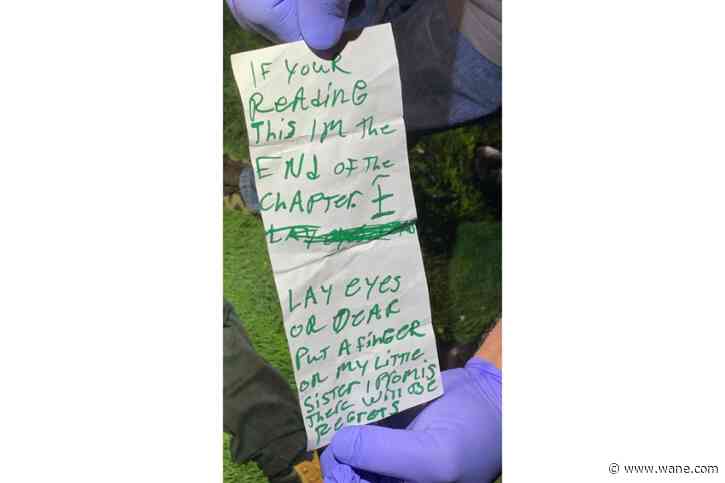 IF YOUR
READING
This IM the
END OF The
CHAPTER. I
LAY
LAY EYES
OR DEAR
PUT A FINGER
ON MY LITTLE
SISTER I PROMIS
There WILL BE
REGRETS
www.wane.com